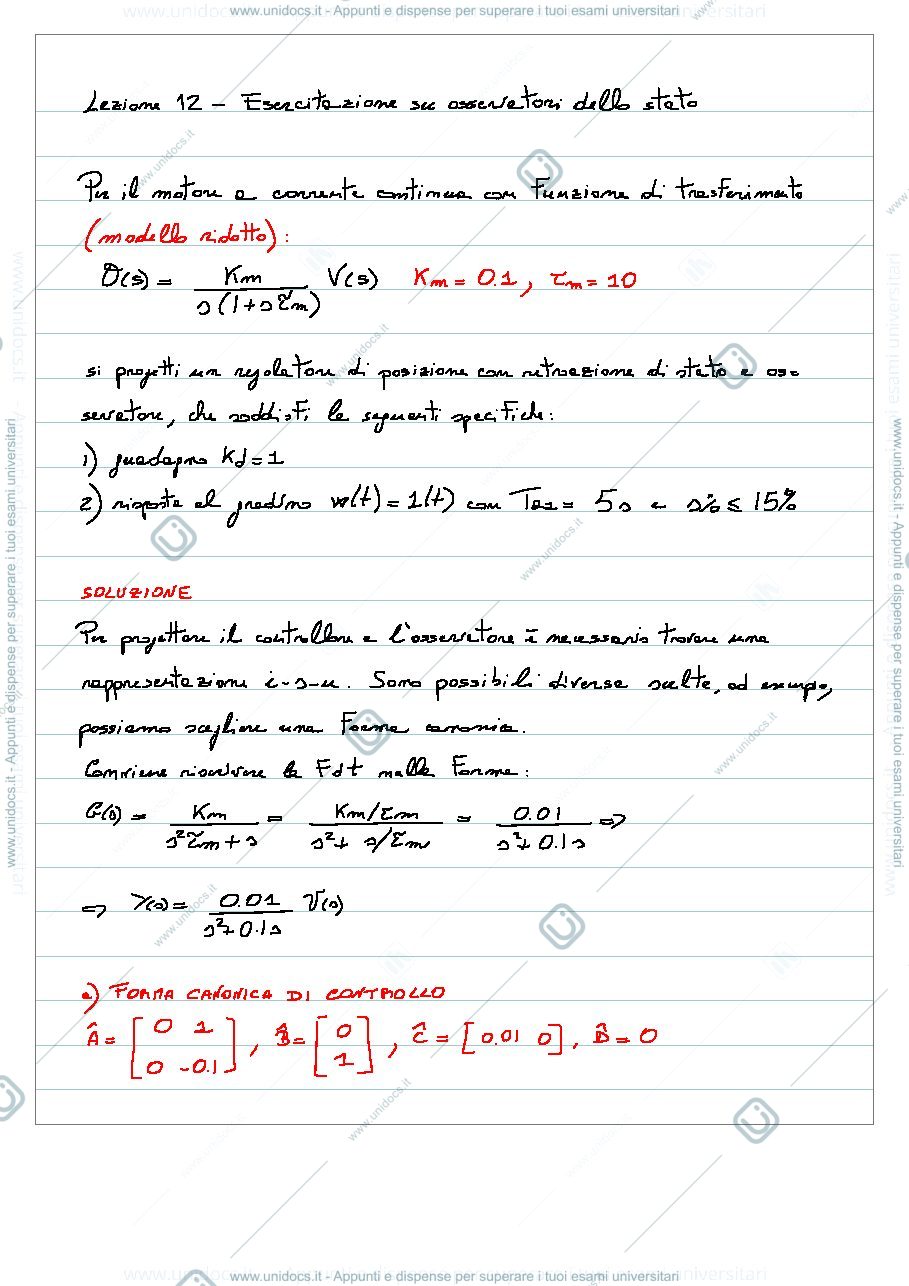 www.unidocs.it - Appunti e dispense per superare i tuoi esami universitari
Lezione 12 - Esercitazione su osservatori dello stato
Per il motore a corrente continua con funzione di trasferimento
(modello ridotto):
Θ(s) = Km / s(1+sτm) V(s) Km = 0.1, τm = 10
si progetti un regolatore di posizione con retroazione di stato e os-
servatore, che soddisfi le seguenti specifiche:
1) guadagno Kd=1
2) risposta al gradino w(t) = 1(t) con Ta1 = 5s e s% ≤ 15%
SOLUZIONE
Per progettare il controllore e l'osservatore è necessario trovare una
rappresentazione i-s-u. Sono possibili diverse scelte, ad esempio,
possiamo scegliere una forma canonica.
Conviene riscrivere la Fdt nella forma:
G(s) = Km / s²τm + s = Km/τm / s² + s/τm = 0.01 / s² + 0.1s =>
=> Y(s) = 0.01 / s² + 0.1s U(s)
a) FORMA CANONICA DI CONTROLLO
Â = [0 1; 0 -0.1], B̂ = [0; 1], Ĉ = [0.01 0], D̂ = 0
www.unidocs.it - Appunti e dispense per superare i tuoi esami universitari